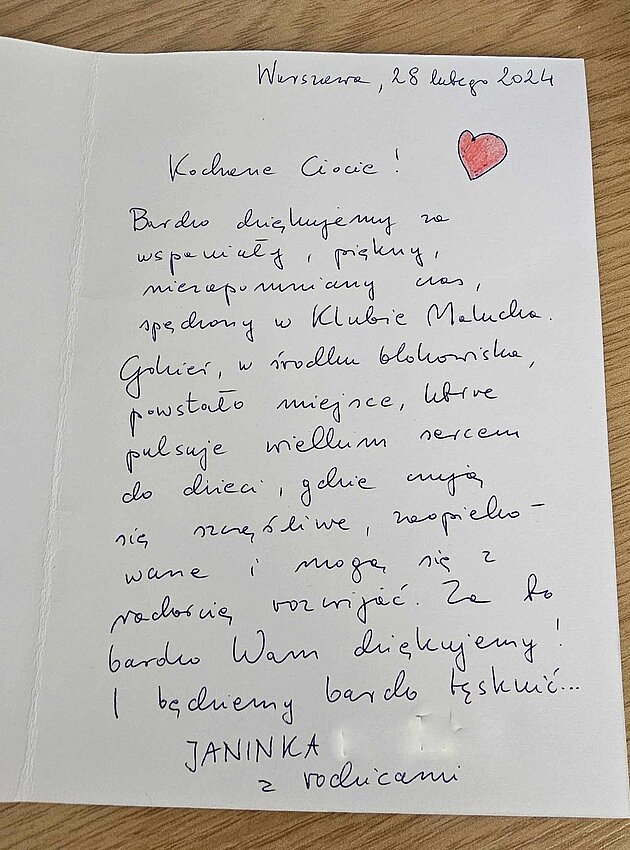 Warszawa, 28 lutego 2024
Kochane Ciocie!
Bardzo dziękujemy za
wspaniały, piękny,
niezapomniany czas,
spędzony w Klubie Malucha.
Gdzieś, w środku blokowiska,
powstało miejsce, które
pulsuje wielkim sercem
do dzieci, gdzie czują
się szczęśliwe, zaopieko-
wane i mogą się z
radością rozwijać. Za to
bardzo Wam dziękujemy!
I będziemy bardzo tęsknić...
JANINKA
z rodzicami